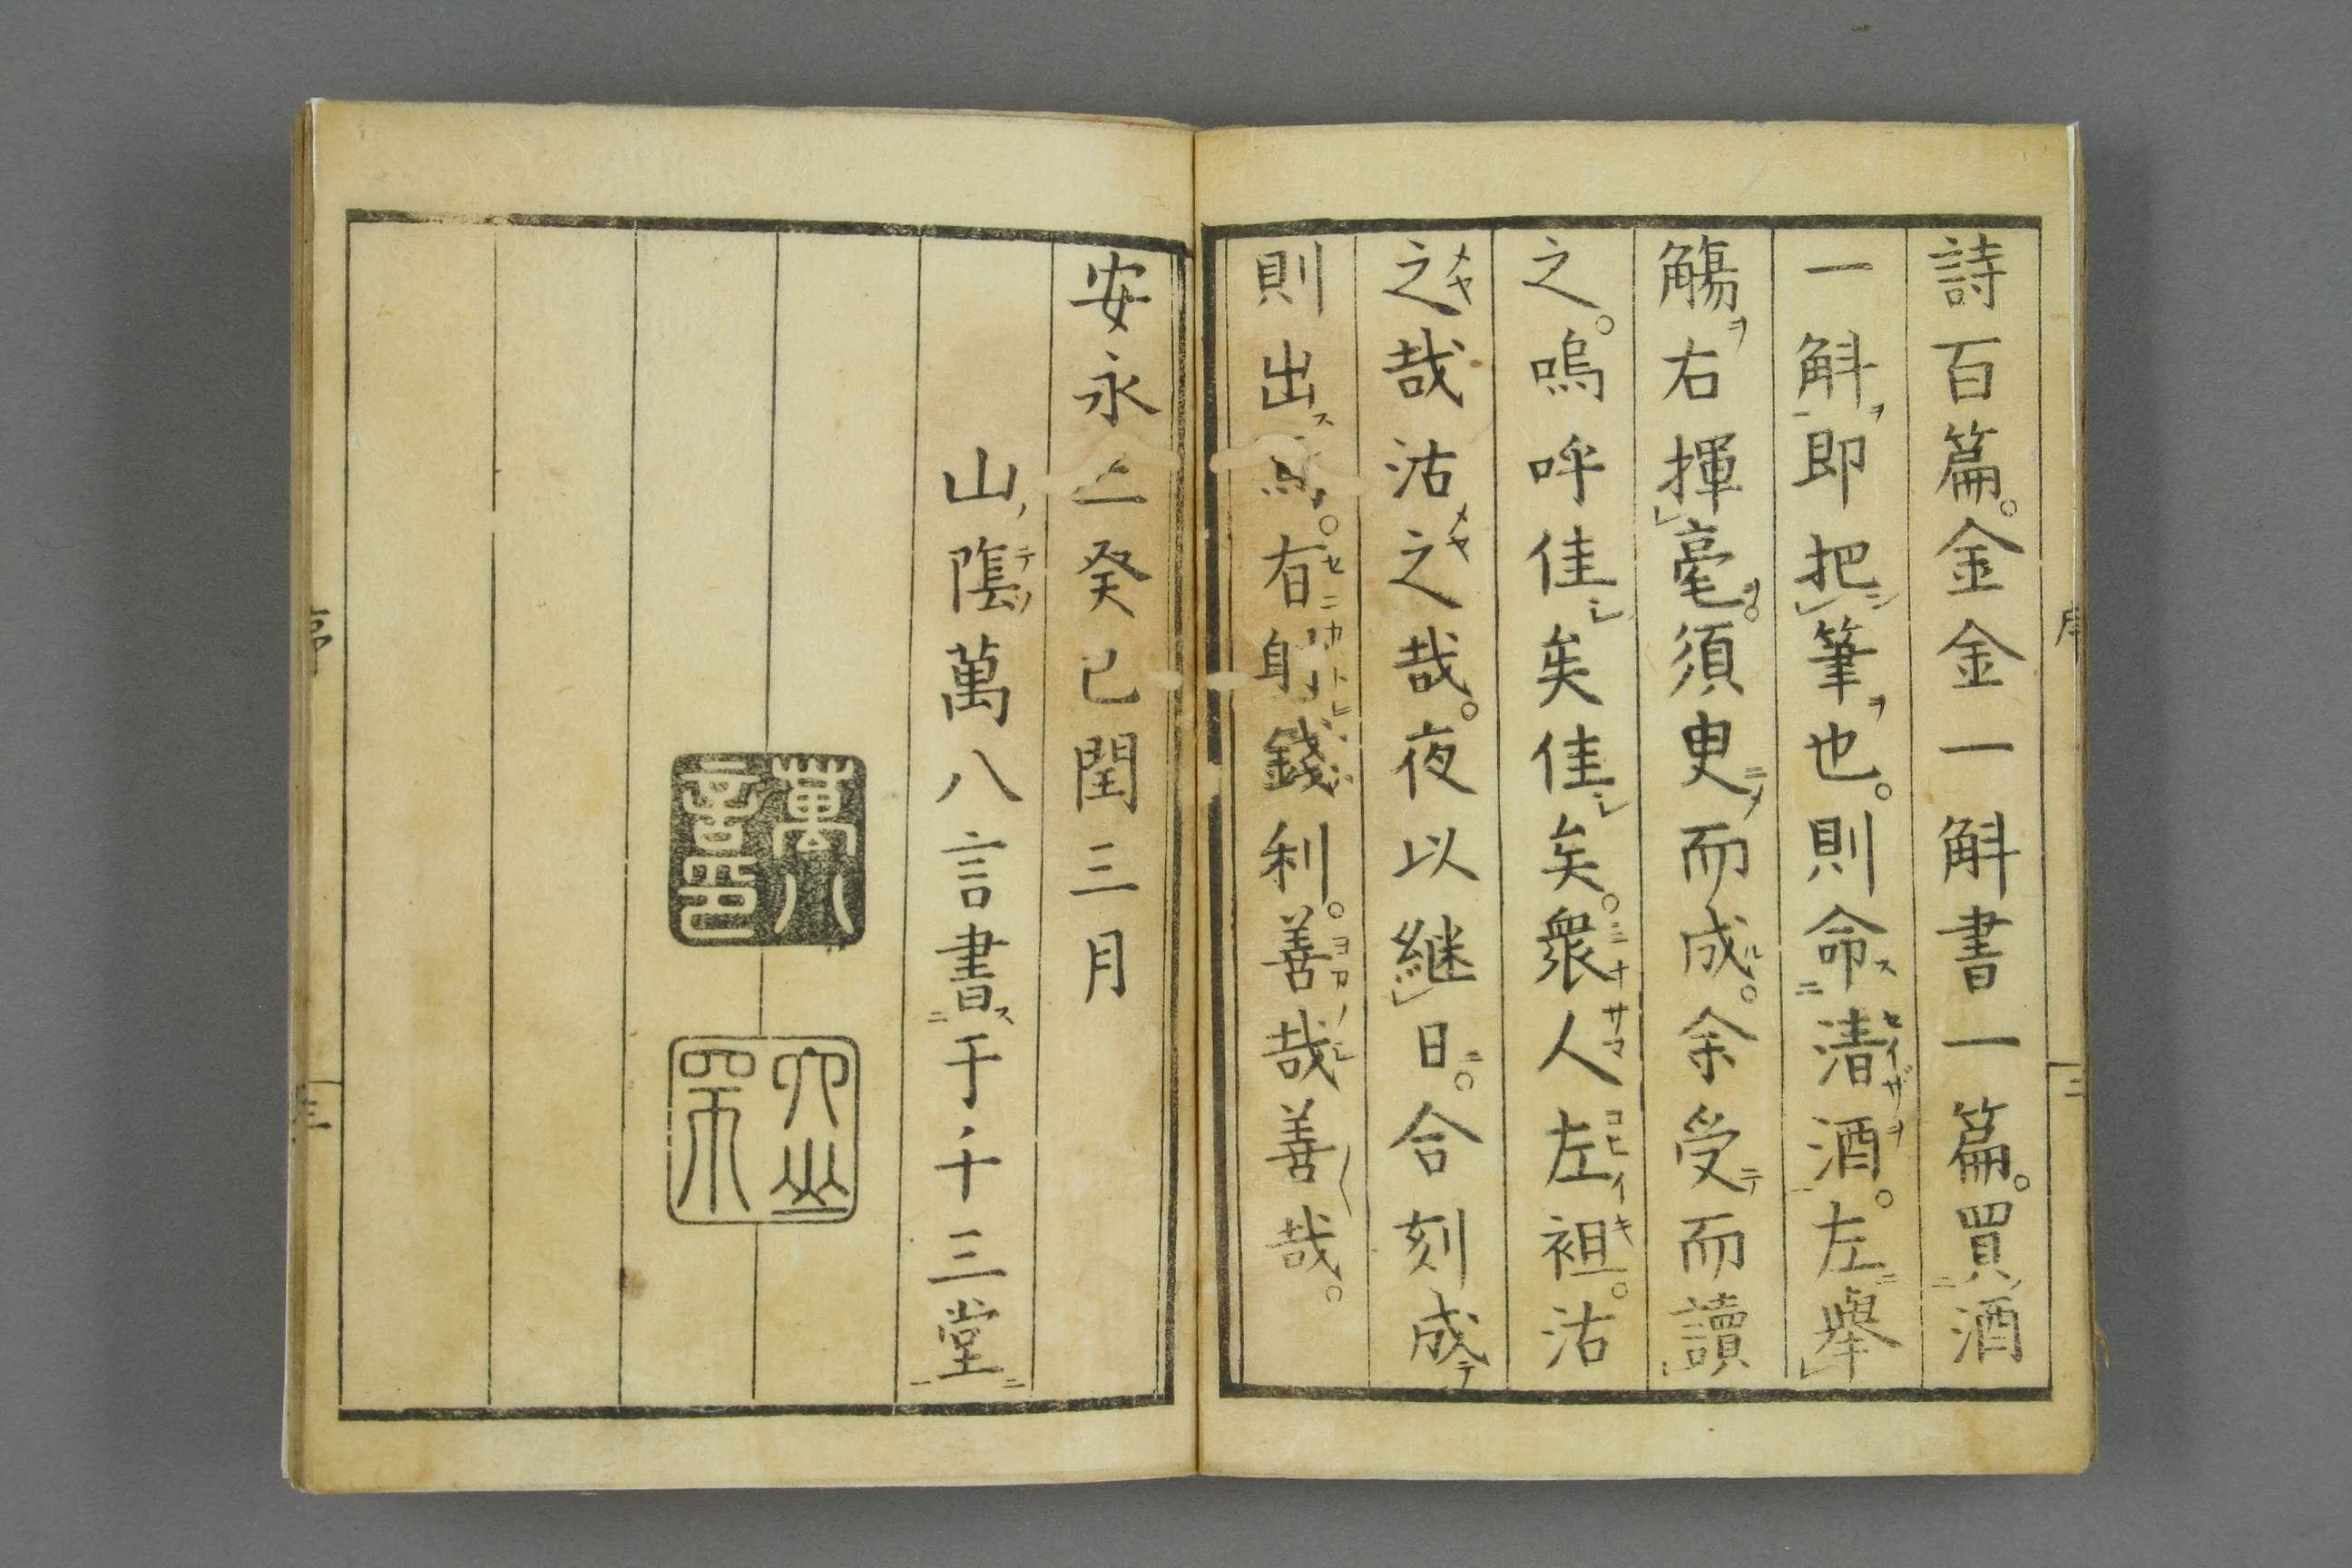 詩百篇。金金一斛書一篇。買酒
一斛即把筆也。則命淸酒。左擧
觴右揮毫。須臾而成。余受而讀
之。嗚呼佳矣佳矣。衆人左袒。沽
之哉沽之哉。夜以継日。合刻成
則出焉。有射錢利。善哉善哉。
安永二癸巳閏三月
山蔭萬八言書于千三堂
萬八
言印
序
三